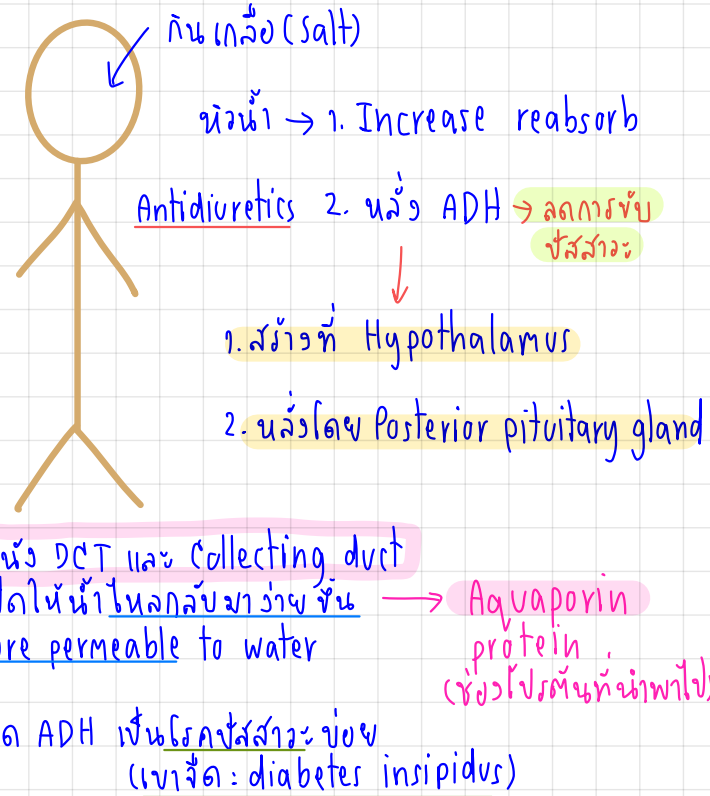 กินเกลือ (Salt)
หิวน้ำ → 1. Increase reabsorb
Antidiuretics 2. หลั่ง ADH → ลดการขับ
ปัสสาวะ
1. สร้างที่ Hypothalamus
2. หลั่งโดย Posterior pituitary gland
นัง DCT และ Collecting duct
ปิดให้น้ำไหลกลับมาง่ายขึ้น → Aquaporin
re permeable to water protein
(ช่องโปรตีนที่นำพาไป
ด ADH เป็นโรคปัสสาวะบ่อย
(เบาจืด : diabetes insipidus)